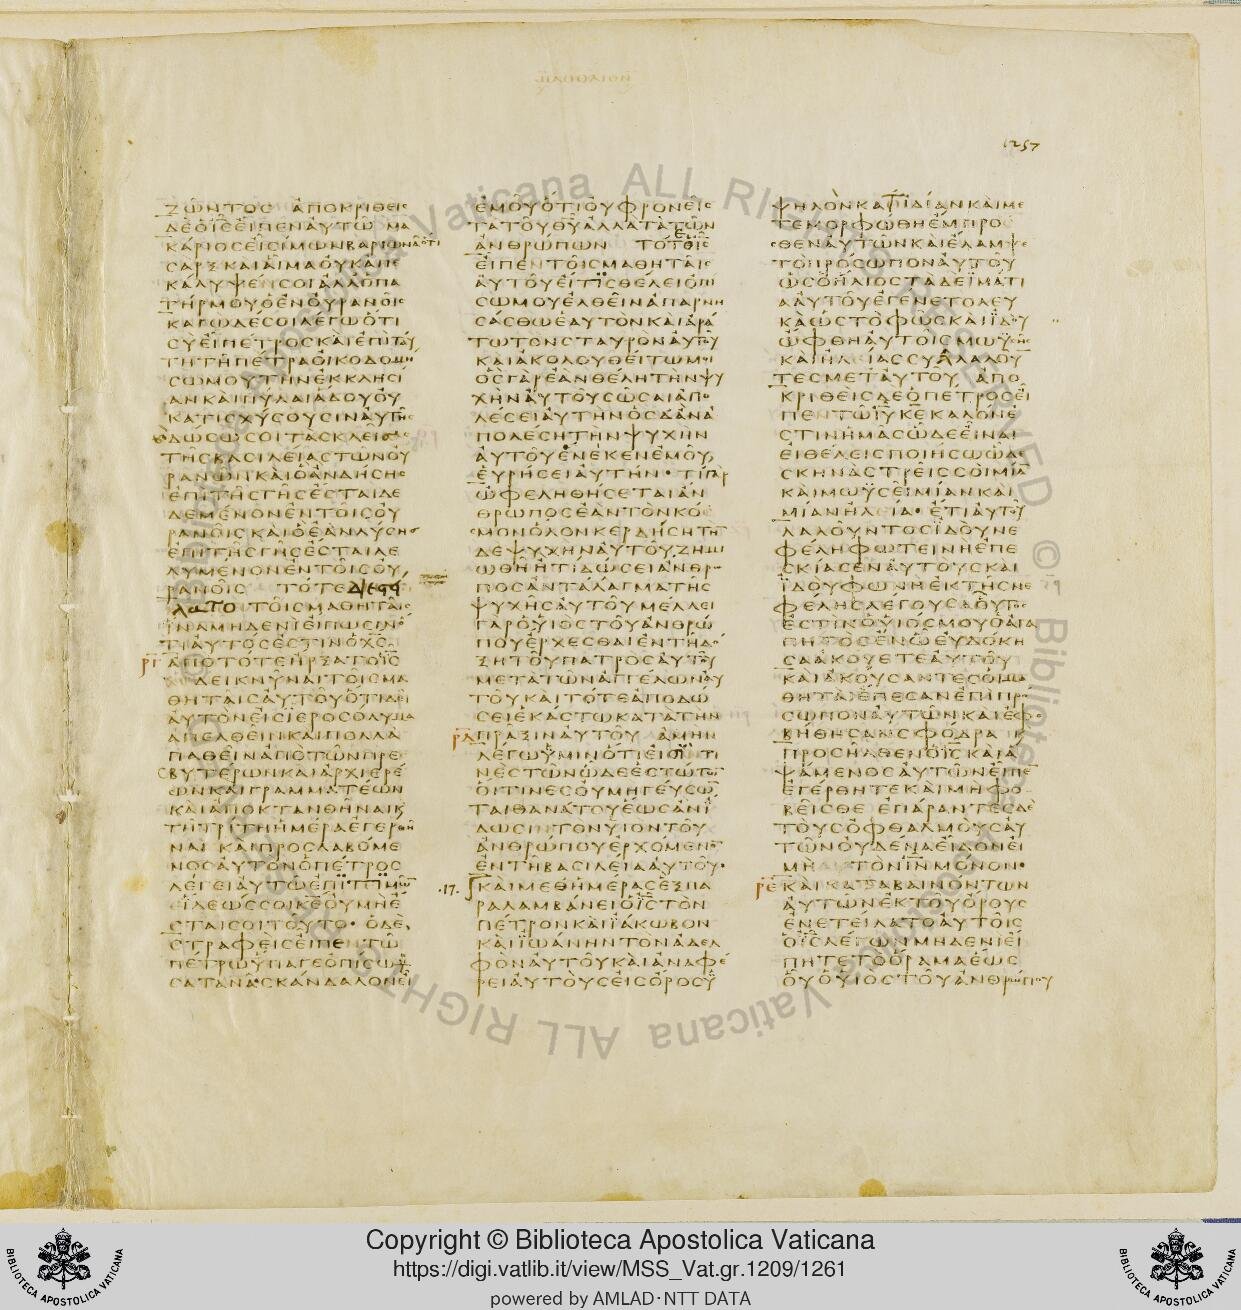 1257
ΖΩΝΤΟΣ ΑΠΟΚΡΙΘΕΙΣ
ΔΕ Ο ΙΣ ΕΙΠΕΝ ΑΥΤΩ ΜΑ
ΚΑΡΙΟΣ ΕΙ ΣΙΜΩΝ ΒΑΡΙΩΝΑ ΟΤΙ
ΣΑΡΞ ΚΑΙ ΑΙΜΑ ΟΥΚ ΑΠΕ
ΚΑΛΥΨΕΝ ΣΟΙ ΑΛΛ Ο ΠΑ
ΤΗΡ ΜΟΥ Ο ΕΝ ΟΥΡΑΝΟΙΣ
ΚΑΓΩ ΔΕ ΣΟΙ ΛΕΓΩ ΟΤΙ
ΣΥ ΕΙ ΠΕΤΡΟΣ ΚΑΙ ΕΠΙ ΤΑΥ
ΤΗ ΤΗ ΠΕΤΡΑ ΟΙΚΟΔΟΜΗ
ΣΩ ΜΟΥ ΤΗΝ ΕΚΚΛΗΣΙ
ΑΝ ΚΑΙ ΠΥΛΑΙ ΑΔΟΥ ΟΥ
ΚΑΤΙΣΧΥΣΟΥΣΙΝ ΑΥΤΗΣ
ΔΩΣΩ ΣΟΙ ΤΑΣ ΚΛΕΙΔΑΣ
ΤΗΣ ΒΑΣΙΛΕΙΑΣ ΤΩΝ ΟΥ
ΡΑΝΩΝ ΚΑΙ Ο ΑΝ ΔΗΣΗΣ
ΕΠΙ ΤΗΣ ΓΗΣ ΕΣΤΑΙ ΔΕ
ΔΕΜΕΝΟΝ ΕΝ ΤΟΙΣ ΟΥ
ΡΑΝΟΙΣ ΚΑΙ Ο ΕΑΝ ΛΥΣΗΣ
ΕΠΙ ΤΗΣ ΓΗΣ ΕΣΤΑΙ ΛΕ
ΛΥΜΕΝΟΝ ΕΝ ΤΟΙΣ ΟΥ
ΡΑΝΟΙΣ ΤΟΤΕ ΔΙΕΣΤΕΙ
ΛΑΤΟ ΤΟΙΣ ΜΑΘΗΤΑΙΣ
ΙΝΑ ΜΗΔΕΝΙ ΕΙΠΩΣΙΝ Ο
ΤΙ ΑΥΤΟΣ ΕΣΤΙΝ Ο ΧΣ
ΡΓ ΑΠΟ ΤΟΤΕ ΗΡΞΑΤΟ ΙΣ
ΔΕΙΚΝΥΝΑΙ ΤΟΙΣ ΜΑ
ΘΗΤΑΙΣ ΑΥΤΟΥ ΟΤΙ ΔΕΙ
ΑΥΤΟΝ ΕΙΣ ΙΕΡΟΣΟΛΥΜΑ
ΑΠΕΛΘΕΙΝ ΚΑΙ ΠΟΛΛΑ
ΠΑΘΕΙΝ ΑΠΟ ΤΩΝ ΠΡΕ
ΣΒΥΤΕΡΩΝ ΚΑΙ ΑΡΧΙΕΡΕ
ΩΝ ΚΑΙ ΓΡΑΜΜΑΤΕΩΝ
ΚΑΙ ΑΠΟΚΤΑΝΘΗΝΑΙ Κ
ΤΗ ΤΡΙΤΗ ΗΜΕΡΑ ΕΓΕΡΘΗ
ΝΑΙ ΚΑΙ ΠΡΟΣΛΑΒΟΜΕ
ΝΟΣ ΑΥΤΟΝ Ο ΠΕΤΡΟΣ
ΛΕΓΕΙ ΑΥΤΩ ΕΠΙΤΙΜΩ
ΙΛΕΩΣ ΣΟΙ ΚΕ ΟΥ ΜΗ Ε
ΣΤΑΙ ΣΟΙ ΤΟΥΤΟ · Ο ΔΕ
ΣΤΡΑΦΕΙΣ ΕΙΠΕΝ ΤΩ
ΠΕΤΡΩ ΥΠΑΓΕ ΟΠΙΣΩ Μ
ΣΑΤΑΝΑ ΣΚΑΝΔΑΛΟΝ ΕΙ
ΕΜΟΥ ΟΤΙ ΟΥ ΦΡΟΝΕΙΣ
ΤΑ ΤΟΥ ΘΥ ΑΛΛΑ ΤΑ ΤΩΝ
ΑΝΘΡΩΠΩΝ ΤΟΤΕ Ο ΙΣ
ΕΙΠΕΝ ΤΟΙΣ ΜΑΘΗΤΑΙΣ
ΑΥΤΟΥ ΕΙ ΤΙΣ ΘΕΛΕΙ ΟΠΙ
ΣΩ ΜΟΥ ΕΛΘΕΙΝ ΑΠΑΡΝΗ
ΣΑΣΘΩ ΕΑΥΤΟΝ ΚΑΙ ΑΡΑ
ΤΩ ΤΟΝ ΣΤΑΥΡΟΝ ΑΥΤΟΥ
ΚΑΙ ΑΚΟΛΟΥΘΕΙΤΩ ΜΟΙ
ΟΣ ΓΑΡ ΕΑΝ ΘΕΛΗ ΤΗΝ ΨΥ
ΧΗΝ ΑΥΤΟΥ ΣΩΣΑΙ ΑΠΟ
ΛΕΣΕΙ ΑΥΤΗΝ ΟΣ Δ ΑΝ Α
ΠΟΛΕΣΗ ΤΗΝ ΨΥΧΗΝ
ΑΥΤΟΥ ΕΝΕΚΕΝ ΕΜΟΥ
ΕΥΡΗΣΕΙ ΑΥΤΗΝ · ΤΙ ΓΑΡ
ΩΦΕΛΗΘΗΣΕΤΑΙ ΑΝ
ΘΡΩΠΟΣ ΕΑΝ ΤΟΝ ΚΟΣ
ΜΟΝ ΟΛΟΝ ΚΕΡΔΗΣΗ ΤΗ
ΔΕ ΨΥΧΗΝ ΑΥΤΟΥ ΖΗΜΙ
ΩΘΗ Η ΤΙ ΔΩΣΕΙ ΑΝΘΡΩ
ΠΟΣ ΑΝΤΑΛΑΓΜΑ ΤΗΣ
ΨΥΧΗΣ ΑΥΤΟΥ ΜΕΛΛΕΙ
ΓΑΡ Ο ΥΙΟΣ ΤΟΥ ΑΝΘΡΩ
ΠΟΥ ΕΡΧΕΣΘΑΙ ΕΝ ΤΗ ΔΟ
ΞΗ ΤΟΥ ΠΑΤΡΟΣ ΑΥΤΟΥ
ΜΕΤΑ ΤΩΝ ΑΓΓΕΛΩΝ ΑΥ
ΤΟΥ ΚΑΙ ΤΟΤΕ ΑΠΟΔΩ
ΣΕΙ ΕΚΑΣΤΩ ΚΑΤΑ ΤΗΝ
ΡΔ ΠΡΑΞΙΝ ΑΥΤΟΥ ΑΜΗΝ
ΛΕΓΩ ΥΜΙΝ ΟΤΙ ΕΙΣΙΝ ΤΙ
ΝΕΣ ΤΩΝ ΩΔΕ ΕΣΤΩΤΩ
ΟΙΤΙΝΕΣ ΟΥ ΜΗ ΓΕΥΣΩ
ΤΑΙ ΘΑΝΑΤΟΥ ΕΩΣ ΑΝ Ι
ΔΩΣΙΝ ΤΟΝ ΥΙΟΝ ΤΟΥ
ΑΝΘΡΩΠΟΥ ΕΡΧΟΜΕΝΟ
ΕΝ ΤΗ ΒΑΣΙΛΕΙΑ ΑΥΤΟΥ ·
·17· ΚΑΙ ΜΕΘ ΗΜΕΡΑΣ ΕΞ ΠΑ
ΡΑΛΑΜΒΑΝΕΙ Ο ΙΣ ΤΟΝ
ΠΕΤΡΟΝ ΚΑΙ ΙΑΚΩΒΟΝ
ΚΑΙ ΙΩΑΝΗΝ ΤΟΝ ΑΔΕΛ
ΦΟΝ ΑΥΤΟΥ ΚΑΙ ΑΝΑΦΕ
ΡΕΙ ΑΥΤΟΥΣ ΕΙΣ ΟΡΟΣ Υ
ΨΗΛΟΝ ΚΑΤ ΙΔΙΑΝ ΚΑΙ ΜΕ
ΤΕΜΟΡΦΩΘΗ ΕΜΠΡΟ
ΣΘΕΝ ΑΥΤΩΝ ΚΑΙ ΕΛΑΜΨΕ
ΤΟ ΠΡΟΣΩΠΟΝ ΑΥΤΟΥ
ΩΣ Ο ΗΛΙΟΣ ΤΑ ΔΕ ΙΜΑΤΙ
Α ΑΥΤΟΥ ΕΓΕΝΕΤΟ ΛΕΥ
ΚΑ ΩΣ ΤΟ ΦΩΣ ΚΑΙ ΙΔΟΥ
ΩΦΘΗ ΑΥΤΟΙΣ ΜΩΥΣΗΣ
ΚΑΙ ΗΛΕΙΑΣ ΣΥΛΛΑΛΟΥ
ΤΕΣ ΜΕΤ ΑΥΤΟΥ ΑΠΟ
ΚΡΙΘΕΙΣ ΔΕ Ο ΠΕΤΡΟΣ ΕΙ
ΠΕΝ ΤΩ ΙΥ ΚΕ ΚΑΛΟΝ Ε
ΣΤΙΝ ΗΜΑΣ ΩΔΕ ΕΙΝΑΙ
ΕΙ ΘΕΛΕΙΣ ΠΟΙΗΣΩ ΩΔΕ
ΣΚΗΝΑΣ ΤΡΕΙΣ ΣΟΙ ΜΙΑ
ΚΑΙ ΜΩΥΣΕΙ ΜΙΑΝ ΚΑΙ
ΜΙΑΝ ΗΛΕΙΑ · ΕΤΙ ΑΥΤΟΥ
ΛΑΛΟΥΝΤΟΣ ΙΔΟΥ ΝΕ
ΦΕΛΗ ΦΩΤΕΙΝΗ ΕΠΕ
ΣΚΙΑΣΕΝ ΑΥΤΟΥΣ ΚΑΙ
ΙΔΟΥ ΦΩΝΗ ΕΚ ΤΗΣ ΝΕ
ΦΕΛΗΣ ΛΕΓΟΥΣΑ ΟΥΤΟΣ
ΕΣΤΙΝ Ο ΥΙΟΣ ΜΟΥ Ο ΑΓΑ
ΠΗΤΟΣ ΕΝ Ω ΕΥΔΟΚΗ
ΣΑ ΑΚΟΥΕΤΕ ΑΥΤΟΥ
ΚΑΙ ΑΚΟΥΣΑΝΤΕΣ ΟΙ ΜΑ
ΘΗΤΑΙ ΕΠΕΣΑΝ ΕΠΙ ΠΡΟ
ΣΩΠΟΝ ΑΥΤΩΝ ΚΑΙ ΕΦΟ
ΒΗΘΗΣΑΝ ΣΦΟΔΡΑ Κ
ΠΡΟΣΗΛΘΕΝ Ο ΙΣ ΚΑΙ Α
ΨΑΜΕΝΟΣ ΑΥΤΩΝ ΕΙΠΕ
ΕΓΕΡΘΗΤΕ ΚΑΙ ΜΗ ΦΟ
ΒΕΙΣΘΕ ΕΠΑΡΑΝΤΕΣ ΔΕ
ΤΟΥΣ ΟΦΘΑΛΜΟΥΣ ΑΥ
ΤΩΝ ΟΥΔΕΝΑ ΕΙΔΟΝ ΕΙ
ΜΗ ΑΥΤΟΝ ΙΝ ΜΟΝΟΝ ·
ΡΕ ΚΑΙ ΚΑΤΑΒΑΙΝΟΝΤΩΝ
ΑΥΤΩΝ ΕΚ ΤΟΥ ΟΡΟΥΣ
ΕΝΕΤΕΙΛΑΤΟ ΑΥΤΟΙΣ
Ο ΙΣ ΛΕΓΩΝ ΜΗΔΕΝΙ ΕΙ
ΠΗΤΕ ΤΟ ΟΡΑΜΑ ΕΩΣ
ΟΥ Ο ΥΙΟΣ ΤΟΥ ΑΝΘΡΩΠΟΥ
Copyright © Biblioteca Apostolica Vaticana
https://digi.vatlib.it/view/MSS_Vat.gr.1209/1261
powered by AMLAD·NTT DATA
BIBLIOTECA APOSTOLICA VATICANA
BIBLIOTECA APOSTOLICA VATICANA